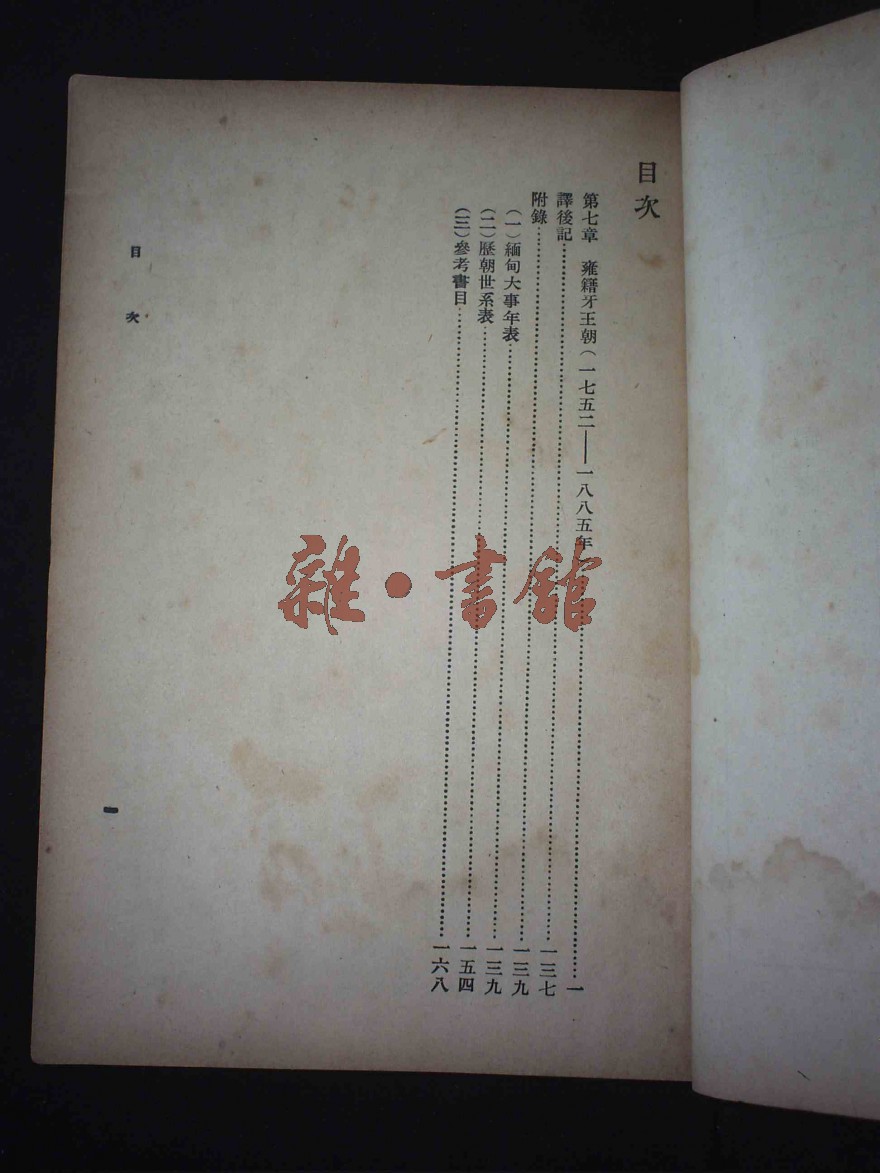 目次
第七章　雍籍牙王朝（一七五二——一八八五年）……一
譯後記……一三七
附錄……一三九
（一）緬甸大事年表……一三九
（二）歷朝世系表……一五四
（三）參考書目……一六八
目　次
一
雜·書館